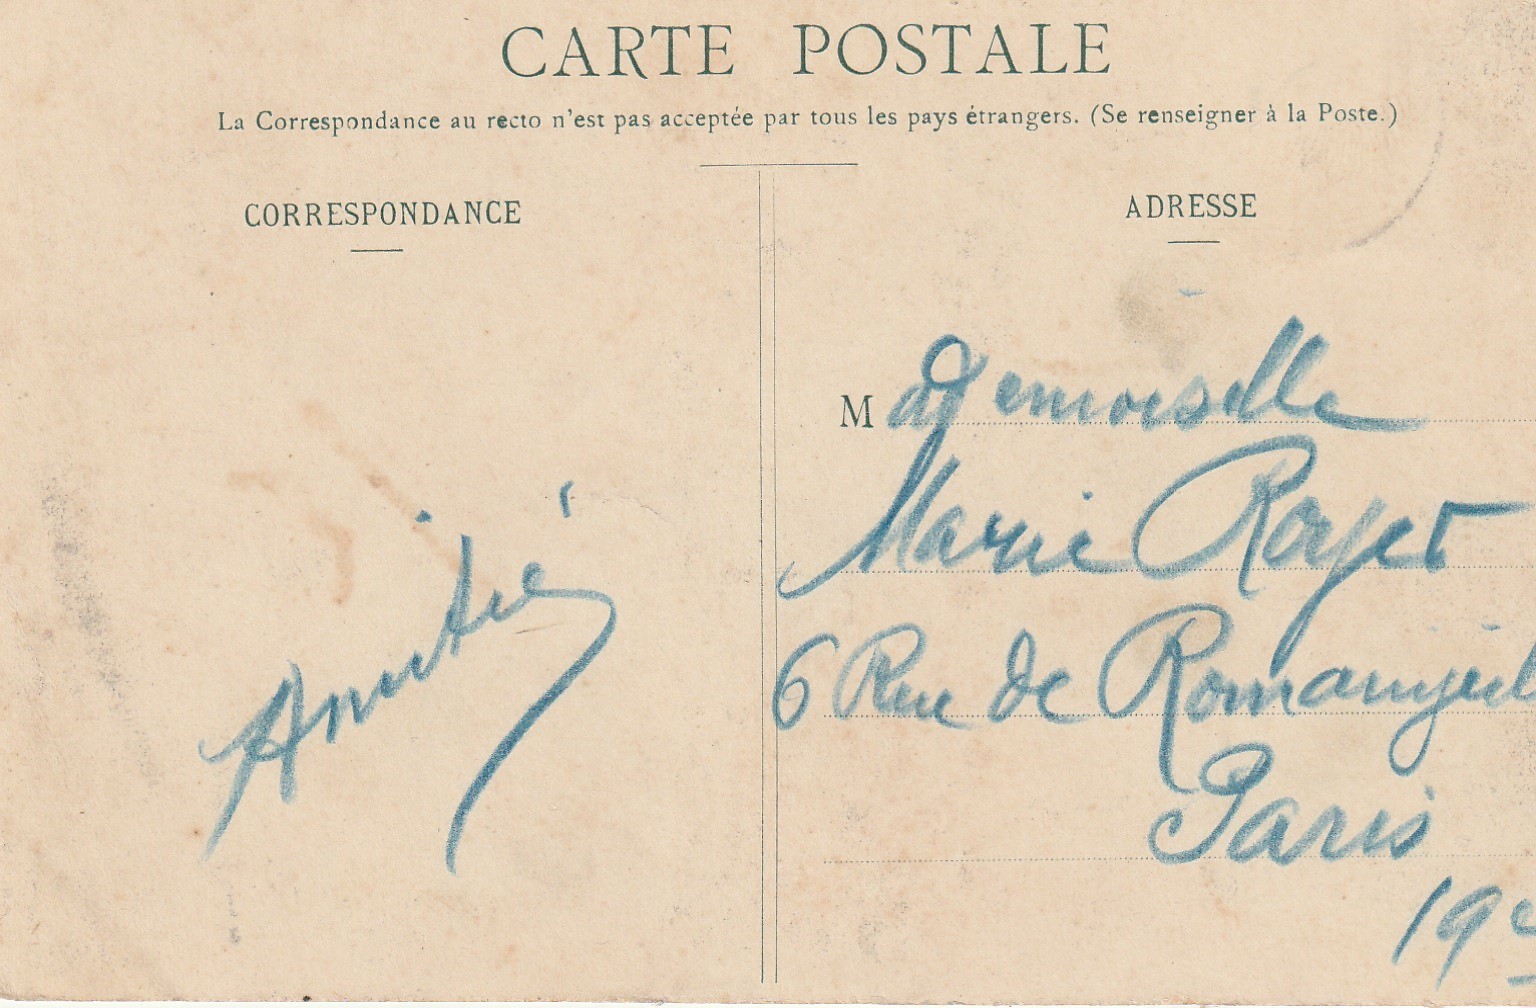 CARTE POSTALE
La Correspondance au recto n'est pas acceptée par tous les pays étrangers. (Se renseigner à la Poste.)
CORRESPONDANCE
Amitié
ADRESSE
Mademoiselle
Marie Royer
6 Rue de Romainvill
Paris
19e